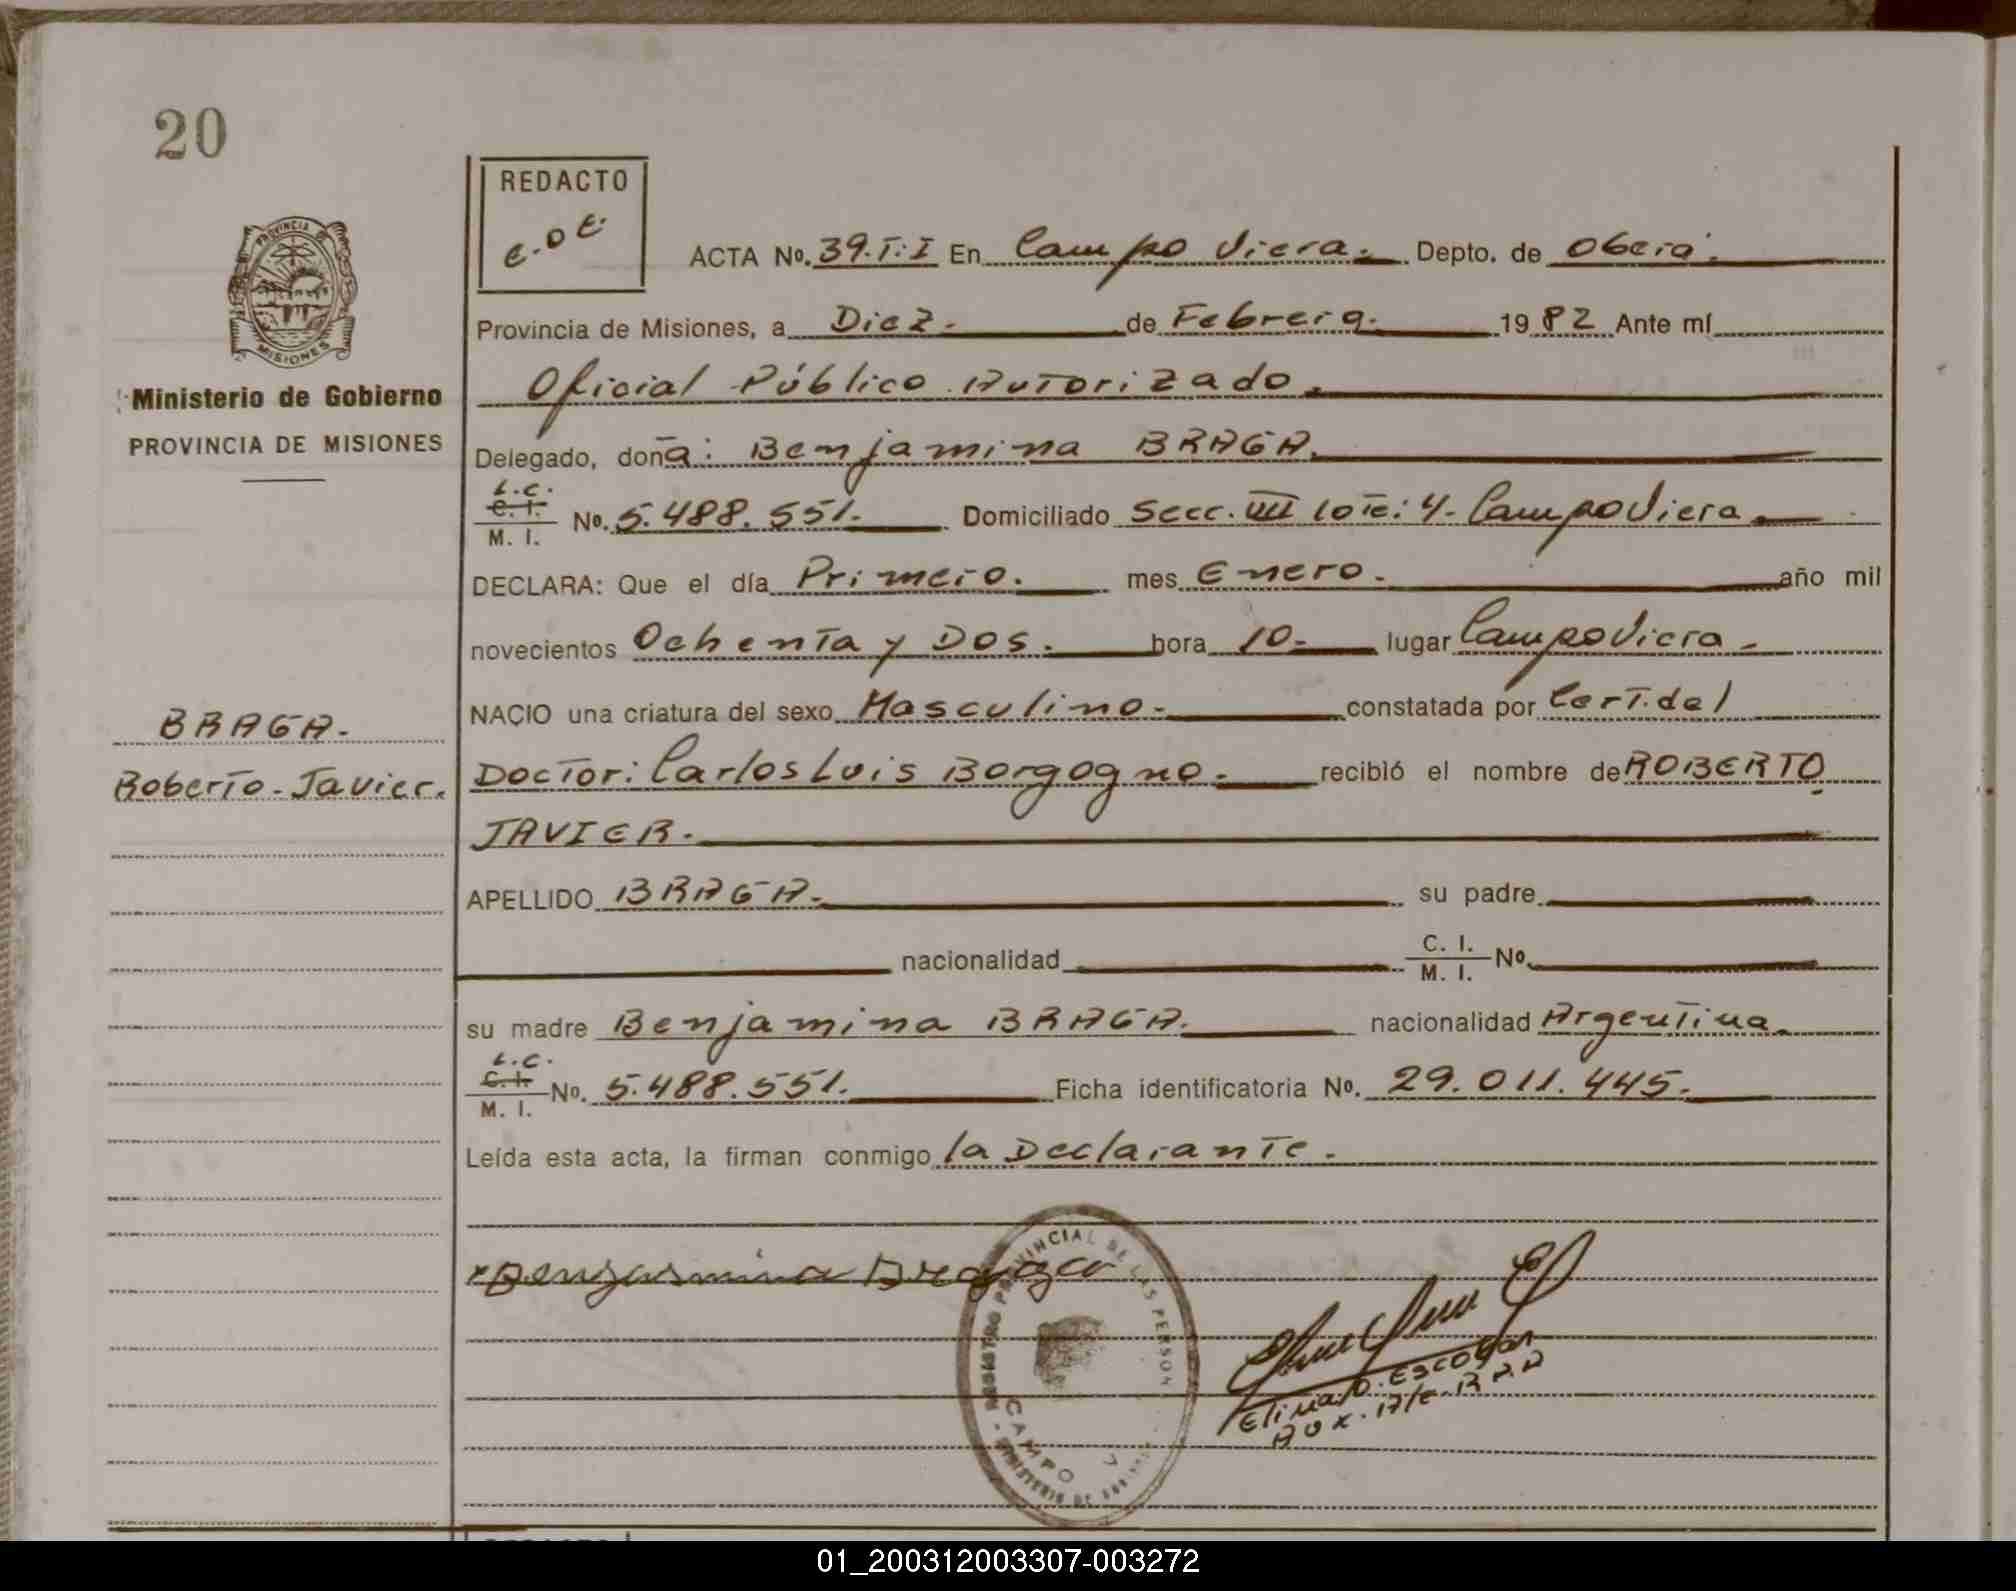 20
REDACTO
E.O.E.
ACTA No. 39.T:I En Campo Viera. Depto. de Oberá.
Provincia de Misiones, a Diez. de Febrero. 1982 Ante mí
Oficial Público Autorizado.
PROVINCIA DE
MISIONES
Ministerio de Gobierno
PROVINCIA DE MISIONES
Delegado, doña: Benjamina BRAGA.
L.C.
C. I.
M. I. No. 5.488.551. Domiciliado Secc. VIII lote: 4. Campo Viera
DECLARA: Que el día Primero. mes Enero. año mil
novecientos Ochenta y Dos. hora 10. lugar Campo Viera.
NACIO una criatura del sexo Masculino. constatada por Cert. del
Doctor: Carlos Luis Borgogno. recibió el nombre de ROBERTO
JAVIER.
BRAGA.
Roberto-Javier.
APELLIDO BRAGA. su padre
nacionalidad C. I. M. I. No.
su madre Benjamina BRAGA. nacionalidad Argentina.
L.C.
C. I.
M. I. No. 5.488.551. Ficha identificatoria No. 29.011.445.
Leída esta acta, la firman conmigo la Declarante.
Benjasmina Braga
REGISTRO PROVINCIAL DE LAS PERSON
CAMPO V
MINISTERIO DE
Elina D. Escobar
01_200312003307-003272